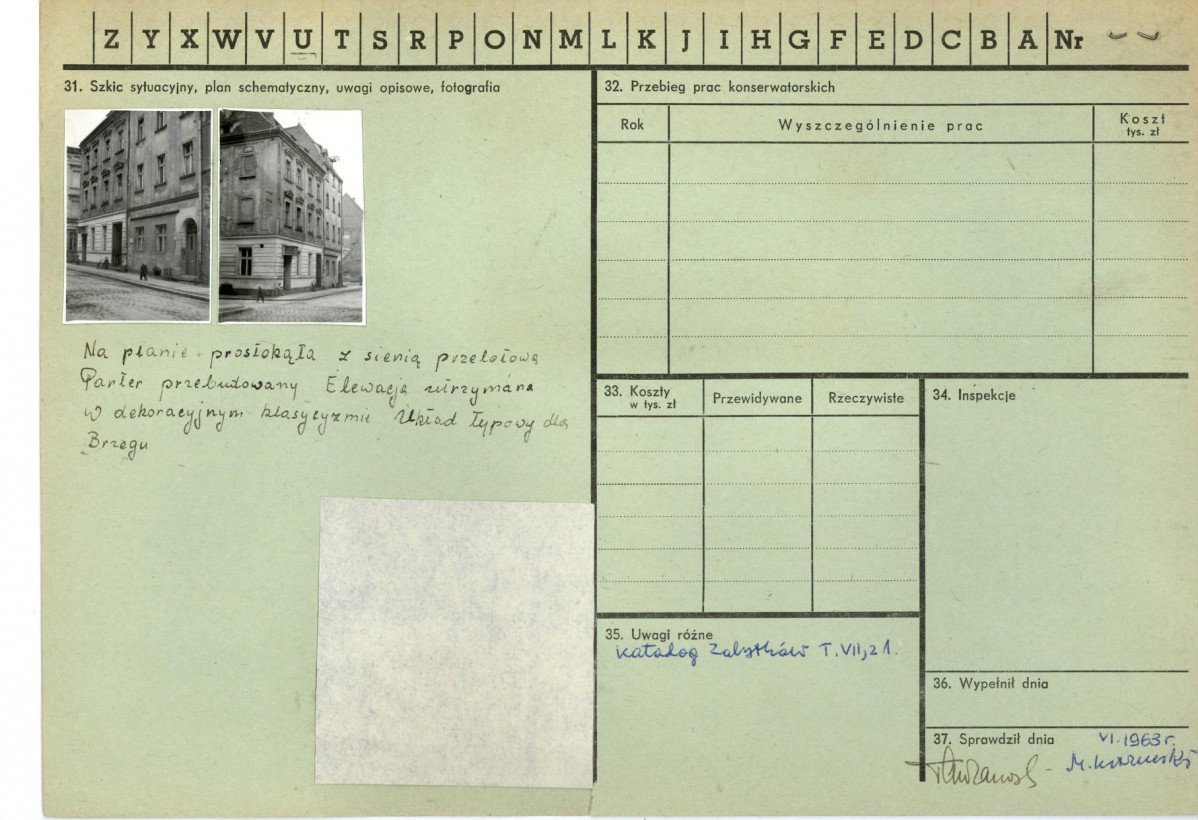 Z Y X W V U T S R P O N M L K J I H G F E D C B A Nr
31. Szkic sytuacyjny, plan schematyczny, uwagi opisowe, fotografia
Na planie prostokąta z sienią przelotową
Parter przebudowany Elewacja utrzymana
w dekoracyjnym klasycyzmie Układ typowy dla
Brzegu
32. Przebieg prac konserwatorskich
Rok Wyszczególnienie prac Koszt
tys. zł
33. Koszty
w tys. zł
Przewidywane Rzeczywiste
34. Inspekcje
35. Uwagi różne
Katalog Zabytków T. VII, z 1.
36. Wypełnił dnia
37. Sprawdził dnia VI. 1963 r.
M.